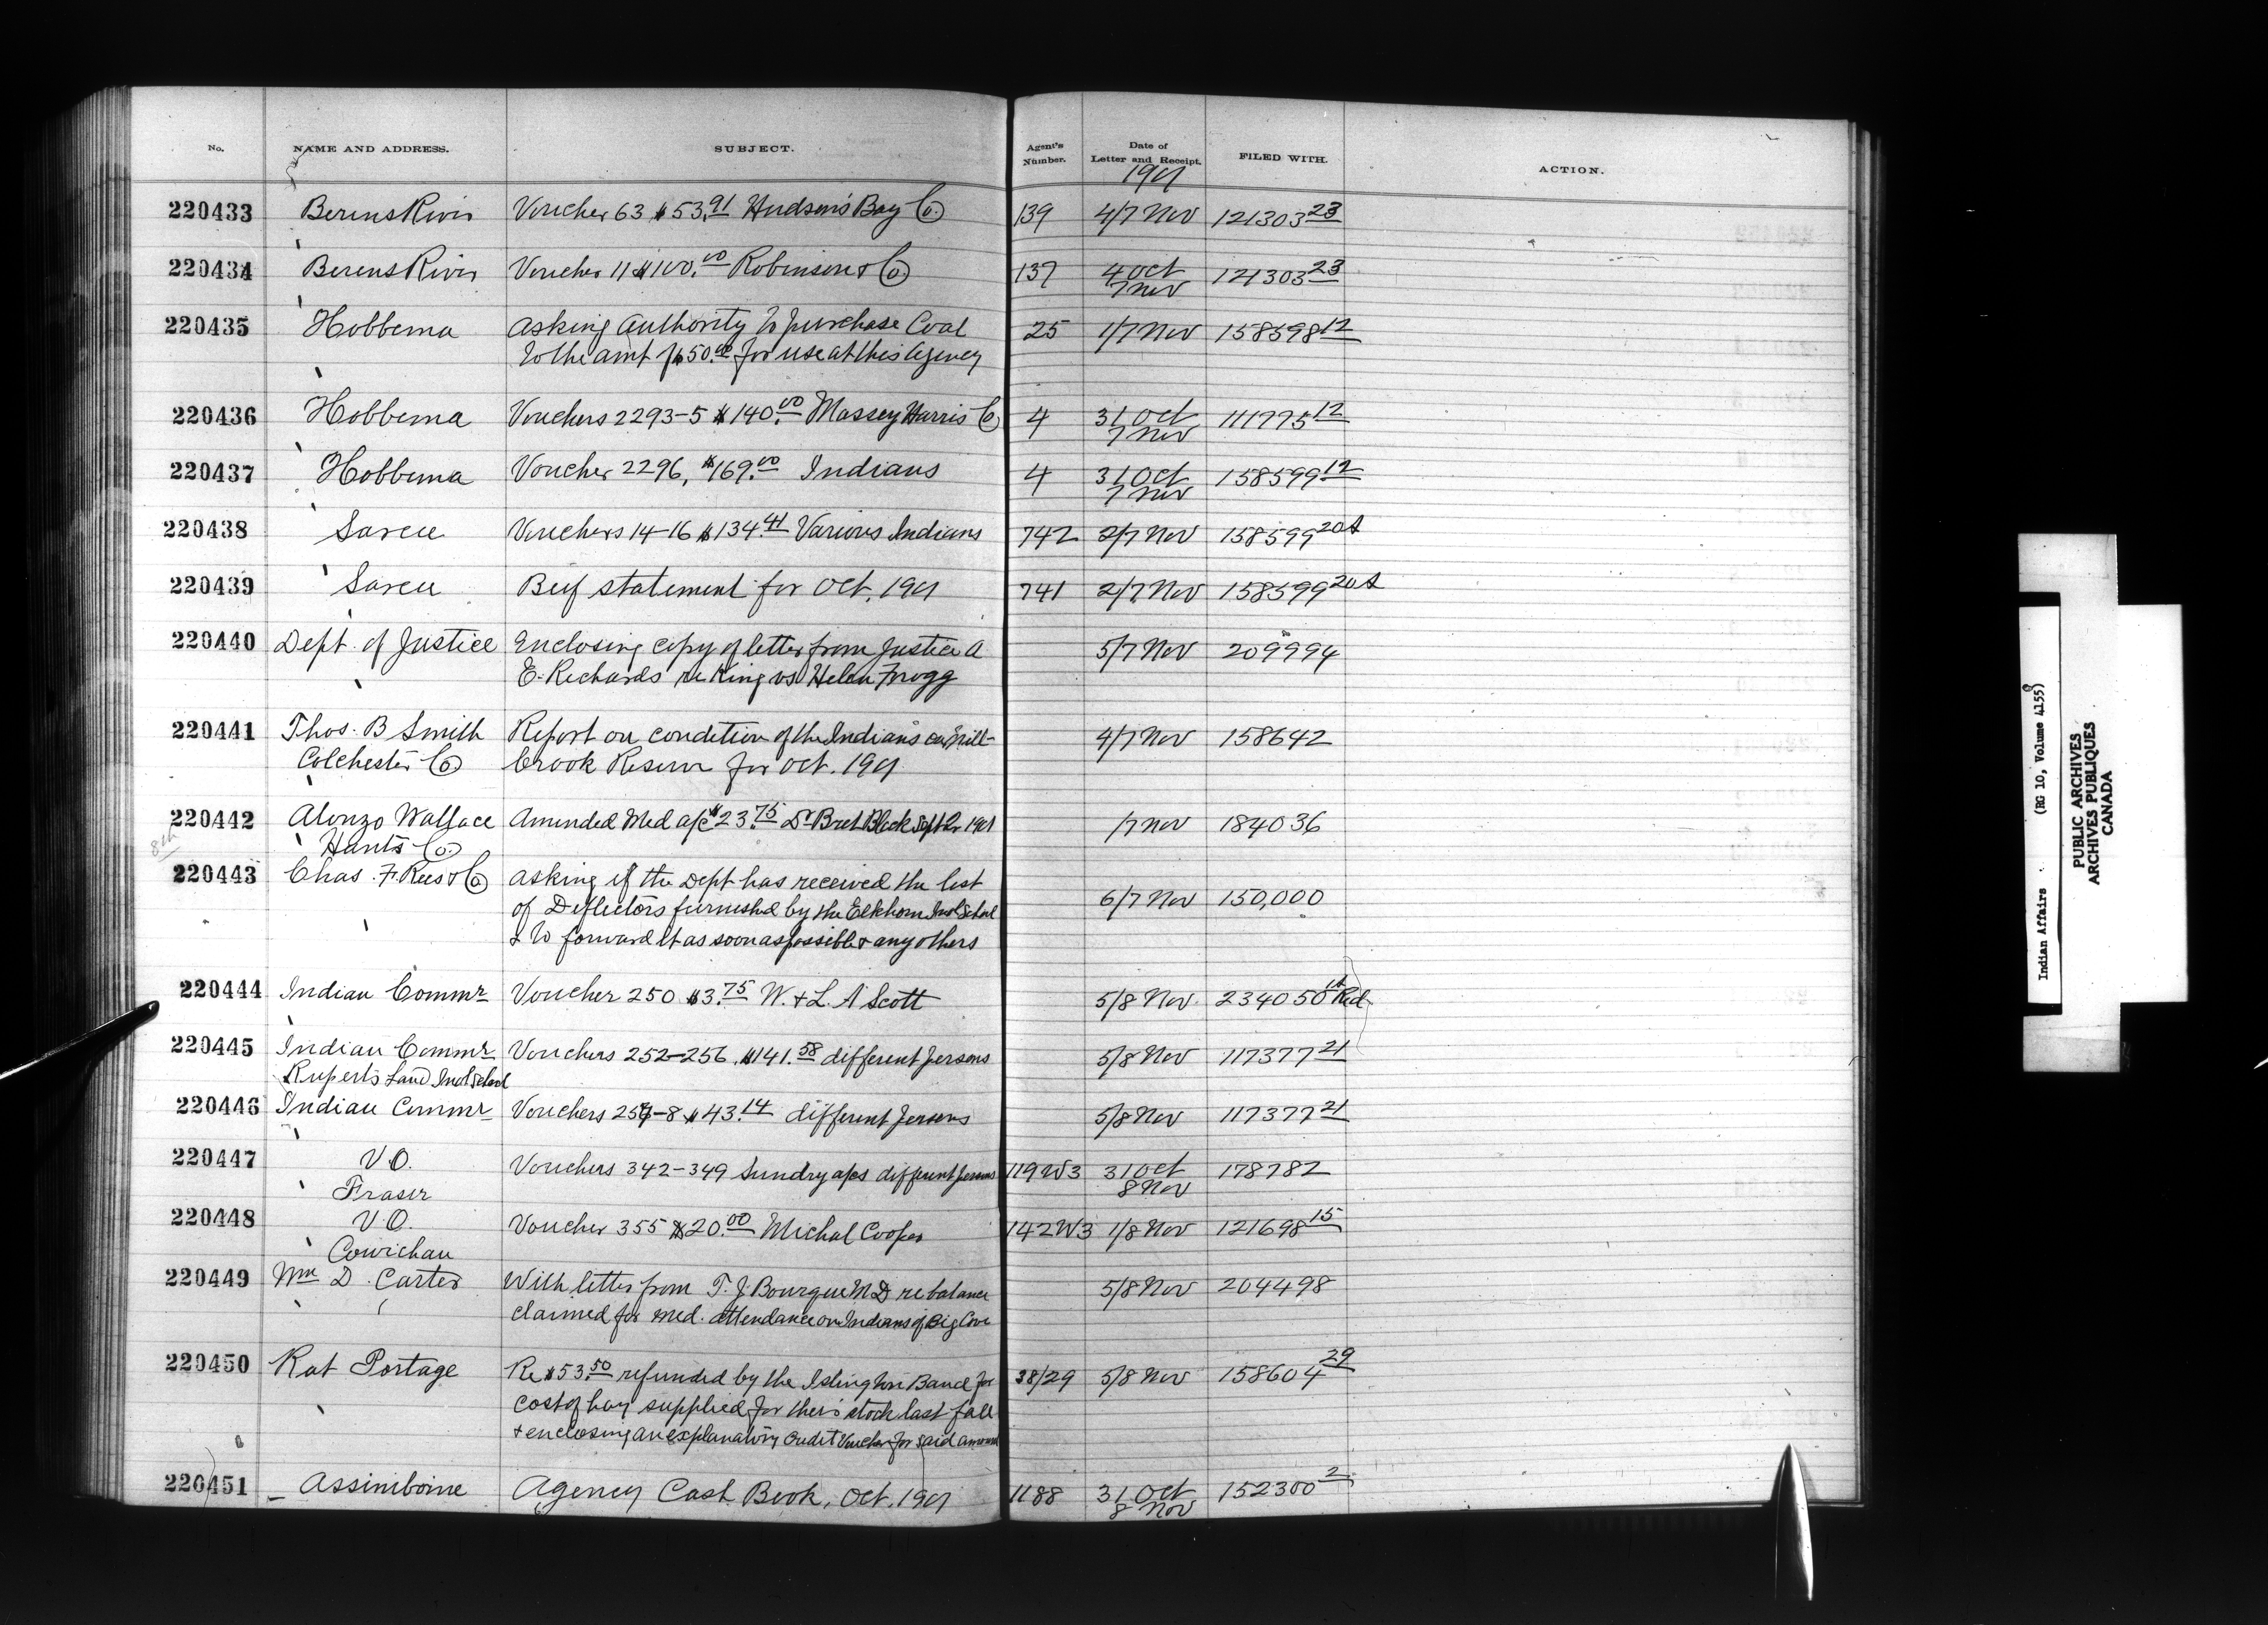 No. NAME AND ADDRESS. SUBJECT. Agent's Number. Date of Letter and Receipt. FILED WITH. ACTION.
1901
220433 Berens River Voucher 63 $53.91 Hudson's Bay Co. 139 4/7 Nov 121303 23
220434 Berens River Voucher 11 $100.00 Robinson & Co. 137 4 Oct 121303 23
7 Nov
220435 Hobbema Asking Authority to purchase Coal 25 1/7 Nov 158598 12
to the amt of $50.00 for use at this Agency
220436 Hobbema Vouchers 2293-5 $140.00 Massey Harris Co 4 31 Oct 111775 12
7 Nov
220437 Hobbema Voucher 2296, $169.00 Indians 4 31 Oct 158599 12
7 Nov
220438 Sarcee Vouchers 14-16 $134.41 Various Indians 742 2/7 Nov 158599 20A
220439 Sarcee Beef statement for Oct. 1901 741 2/7 Nov 158599 20A
220440 Dept. of Justice Enclosing copy of letter from Justice A 5/7 Nov 209994
E. Richards re King vs Helen Frogg
220441 Thos. B Smith Report on condition of the Indians on Mill- 4/7 Nov 158642
Colchester Co brook Reserve for Oct. 1901
220442 Alonzo Wallace Amended Med a/c $23.75 Dr Bret Black Sept Qr 1901 /7 Nov 184036
8th Hants Co.
220443 Chas. F. Rees & Co Asking if the Dept has received the list
of Deflectors furnished by the Elkhorn Indl School 6/7 Nov 150,000
& to forward it as soon as possible & any others
220444 Indian Commr Voucher 250 $3.75 W. & L. A Scott 5/8 Nov. 234050 Red
220445 Indian Commr Vouchers 252-256 $141.58 different persons 5/8 Nov 117377 21
Ruperts Land Indl School
220446 Indian Commr Vouchers 257-8 $43.14 different persons 5/8 Nov 117377 21
220447 V.O. Vouchers 342-349 Sundry a/cs different persons 119W3 31 Oct 178782
Fraser 8 Nov
220448 V.O. Voucher 355 $20.00 Michal Cooper 142W3 1/8 Nov 121698 15
Cowichan
220449 Wm D. Carter With letter from T. J. Bourque M.D re balance 5/8 Nov 204498
claimed for med. attendance on Indians of Big Cove
220450 Rat Portage Re $53.50 refunded by the Islington Band for 38/29 5/8 Nov 158604 29
cost of hay supplied for their stock last fall
& enclosing an explanatory Credit Voucher for said amount
220451 Assiniboine Agency Cash Book, Oct. 1901 1188 31 Oct 152300 2
8 Nov
Indian Affairs . (RG 10, Volume 4155)
PUBLIC ARCHIVES
ARCHIVES PUBLIQUES
CANADA